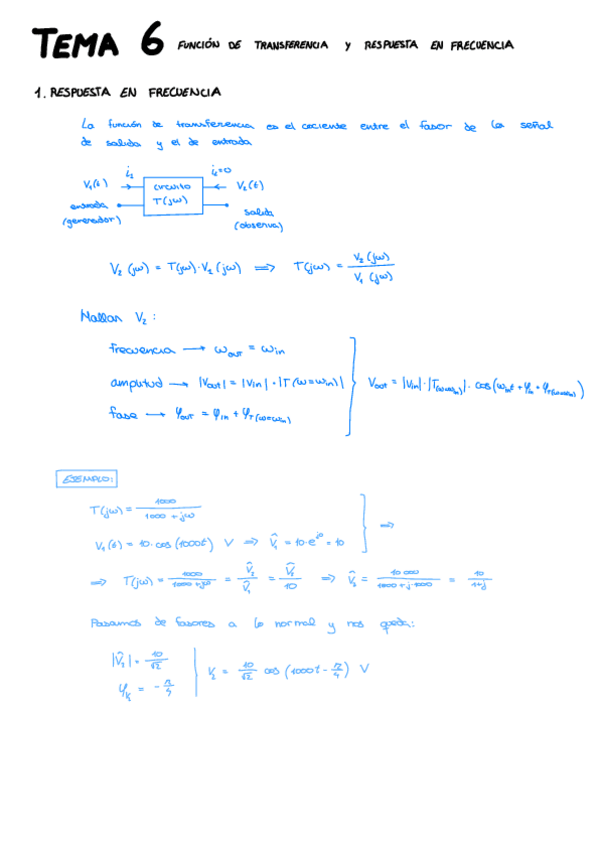 TEMA 6 FUNCIÓN DE TRANSFERENCIA Y RESPUESTA EN FRECUENCIA
1. RESPUESTA EN FRECUENCIA
La función de transferencia es el cociente entre el fasor de la señal
de salida y el de entrada
i₁ i₂=0
V₁(t) circuito V₂(t)
T(jω)
entrada salida
(generador) (observa)
V₂(jω) = T(jω)·V₁(jω) ⟹ T(jω) = V₂(jω) / V₁(jω)
Hallar V₂:
frecuencia → ω_out = ω_in
amplitud → |Vout| = |Vin|·|T(ω=ω_in)| Vout = |Vin|·|T(ω=ω_in)|·cos(ω_in t + φ_in + φ_T(ω=ω_in))
fase → φ_out = φ_in + φ_T(ω=ω_in)
EJEMPLO:
T(jω) = 1000 / 1000 + jω
V₁(t) = 10·cos(1000t) V ⟹ V̂₁ = 10·e^j0 = 10 ⟹
⟹ T(jω) = 1000 / 1000 + jω = V̂₂ / V̂₁ = V̂₂ / 10 ⟹ V̂₂ = 10 000 / 1000 + j·1000 = 10 / 1+j
Pasamos de fasores a lo normal y nos queda:
|V̂₂| = 10/√2
φ_V₂ = -π/4
V₂ = 10/√2 cos(1000t - π/4) V